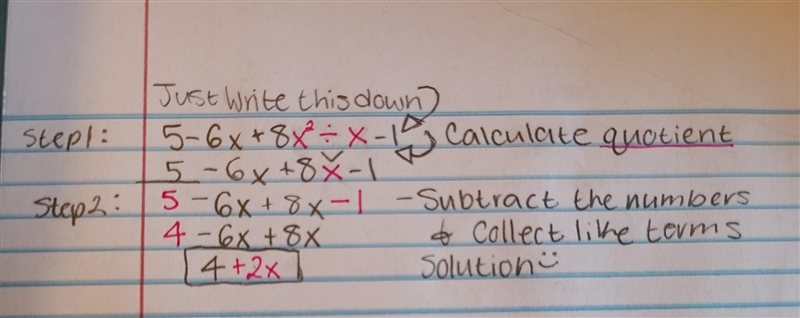 Just Write this down
Step1: 5-6x+8x²÷x-1 Calculate quotient
5-6x+8x-1
Step2: 5-6x+8x-1 - Subtract the numbers
4-6x+8x & Collect like terms
4+2x Solution